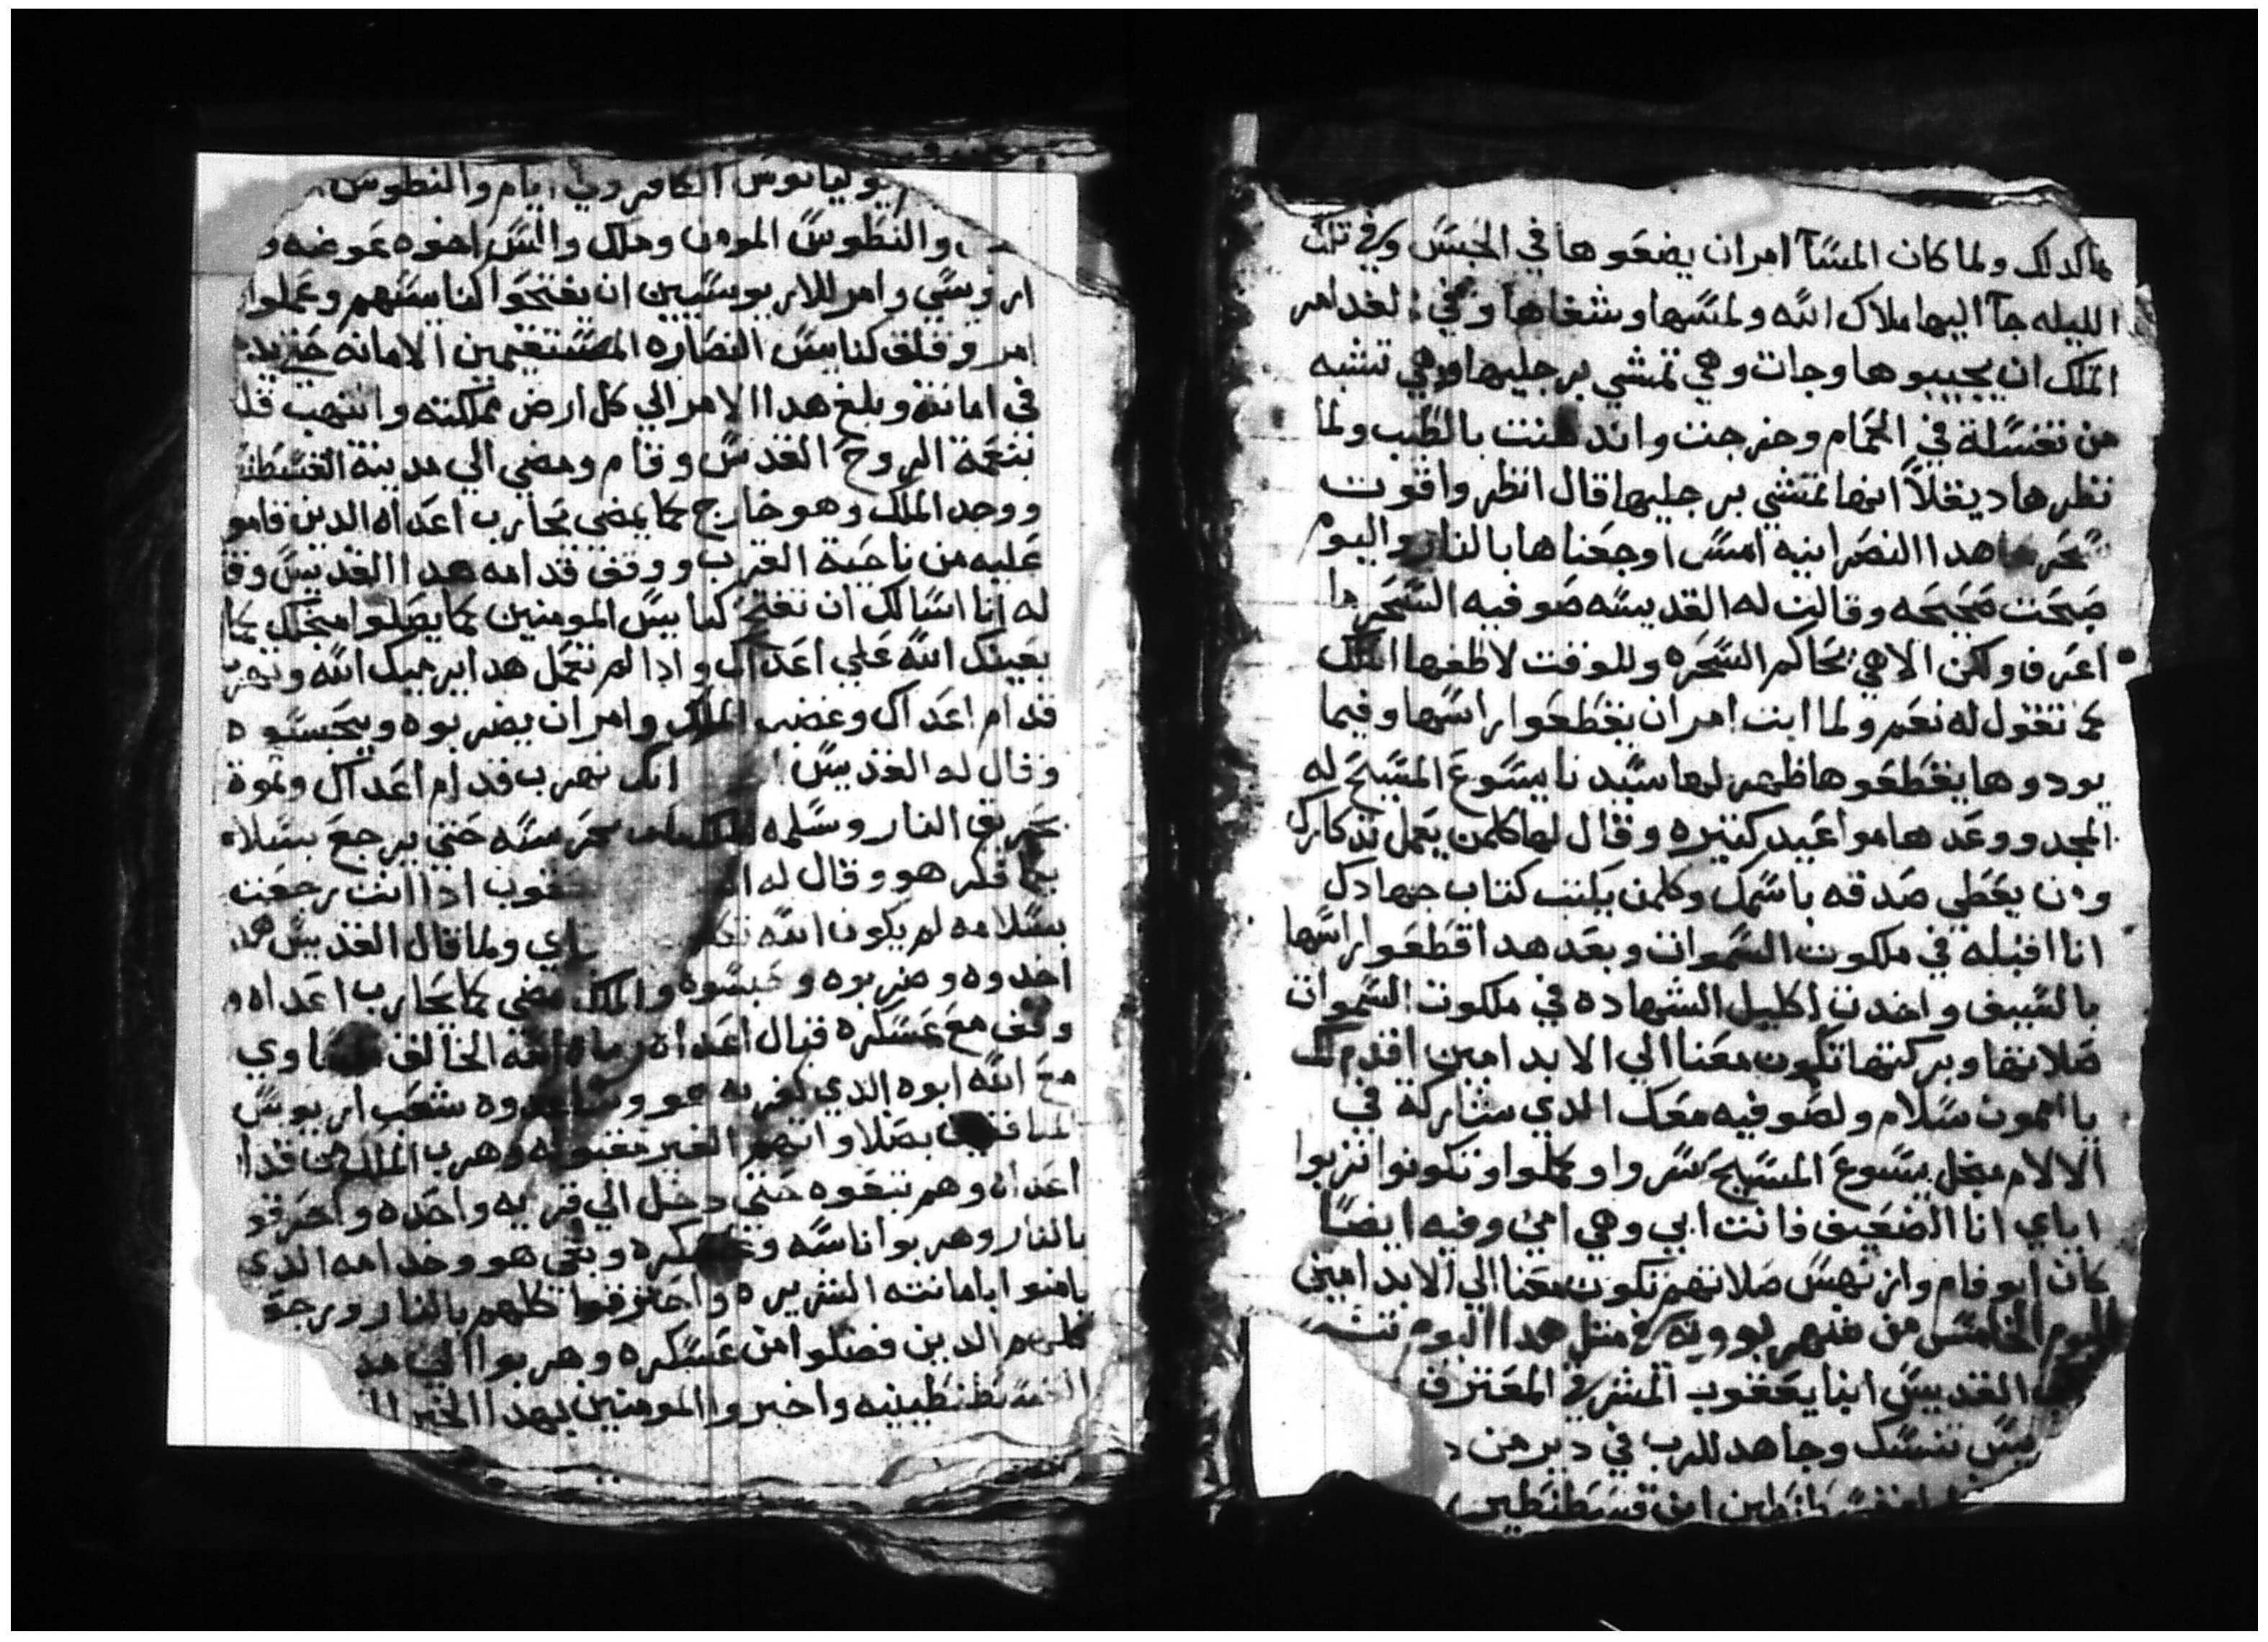 كدلك ولما كان المسآ امر ان يضعوها في الحبس وفي تلك
الليله جآ اليها ملاك الله ولمسها وشفاها وفي الغد امر
الملك ان يجيبوها وجات وهي تمشي برجليها وهي تشبه
من تغسلة في الحمام وخرجت واتدهنت بالطيب ولما
نظرها ديقلا انها تمشي برجليها قال انظروا قوت
سحر هدا النصرانيه امس اوجعناها بالنار واليوم
صبحت صحيحه وقالت له القديسه صوفيه السحر ما
اعرف ولكن الاهي يحاكم السحره وللوقت لاطفها الملك
كما تقول له نعم ولما ابت امر ان يقطعوا راسها وفيما
يودوها يقطعوها ظهر لها سيدنا يسوع المسيح له
المجد ووعدها مواعيد كتيره وقال لها كلمن يعمل تدكارك
ومن يعطي صدقه باسمك وكلمن يكتب كتاب جهادك
انا اقبله في ملكوت السموات وبعد هدا اقطعوا راسها
بالسيف واخدت اكليل الشهاده في ملكوت السموات
صلاتها وبركتها تكون معنا الي الابد امين اقدم لك
يا امون سلام ولصوفيه معك الدي شاركة في
الالام مجل يسوع المسيح سروا وكملوا وتكونوا تربوا
اياي انا الضعيف فانت ابي وهي امي وفيه ايضا
كان ابو فام وازنهس صلاتهم تكون معنا الي الابد امين
اليوم الخامس من شهر بوونه في متل هدا اليوم تنيح
القديس ابنا يعقوب المشرقي المعترف
تنسك وجاهد للرب في دير من
ابن قسطنطين
يوليانوس الكافر وفي ايام والنطوس
والنطوس المومن وملك والس اخوه عوضه و
اريوسي وامر للاريوسيين ان يفتحوا كنايسهم وعملوا
امر وقلق كنايس النصاره المستقيمين الامانه
في امانته وبلغ هدا الامر الي كل ارض مملكته والتهب
بنعمة الروح القدس وقام ومضي الي مدينة القسطنـ
ووجد الملك وهو خارج كما يمضي يحارب اعداه الدين قامو
عليه من ناحية الغرب ووقف قدامه هدا القديس وقا
له انا اسالك ان تفتح كنايس المومنين كما يصلوا مجلك كما
يعينك الله علي اعداك وادا لم تعمل هدا يرميك الله وتهر
قدام اعداك وغضب الملك وامر ان يضربوه ويحبسوه
وقال له القديس انك تهرب قدام اعداك وتموة
بحريق النار وسلمه يحرسه حتي يرجع بسلام
بما فكر هو وقال له يعقوب ادا انت رجعت
بسلامه لم يكون الله ولما قال القديس هدا
اخدوه وضربوه وحبسوه والملك مضي كما يحارب اعداه و
وقف مع عسكره قبال اعداه الله الخالق
مع الله ابوه الدي كفر به شعب اريوس
بصلاواتهم الغير مقبوله وهرب الملك من قدام
اعداه وهم تبعوه حتي دخل الي قريه واحده واحرقو
بالنار وهربوا ناسه وعسكره وبقي هو وخدامه الدي
يامنوا بامانته الشريره واحترقوا كلهم بالنار ورجعو
كلهم الدين فضلوا من عسكره وهربوا الي مد
القسطنطينيه واخبروا المومنين بهدا الخبر